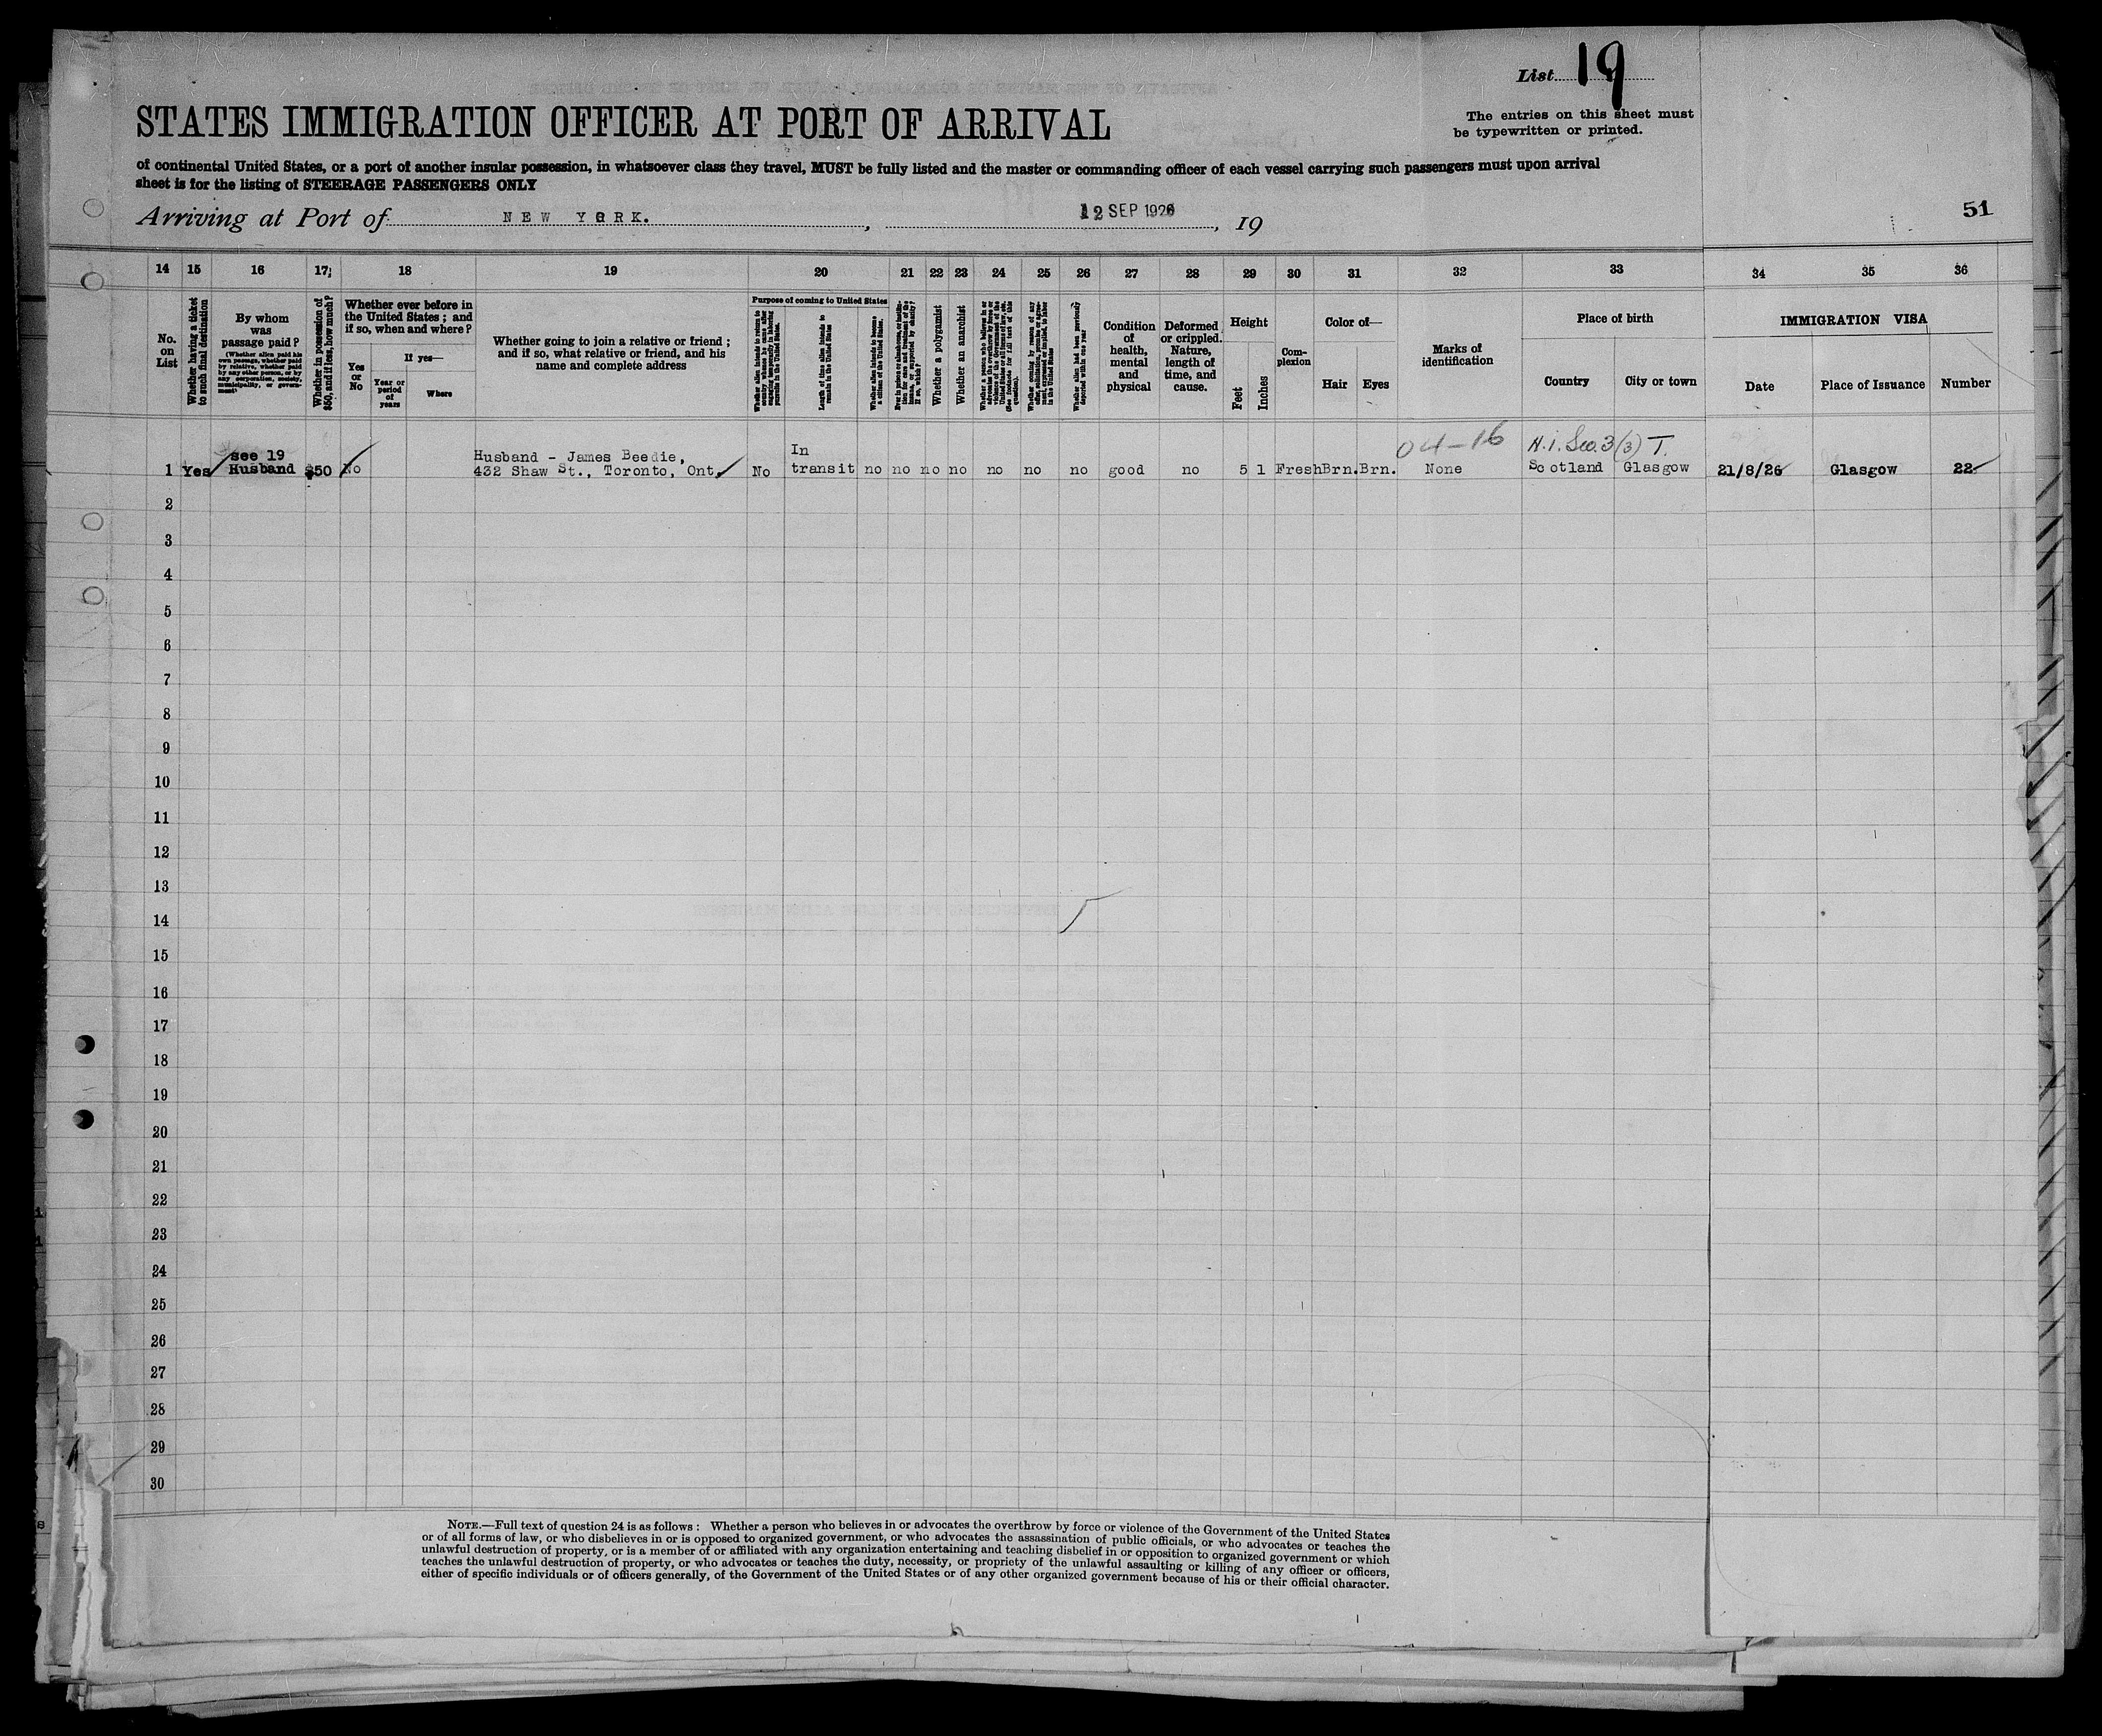 List 19
The entries on this sheet must
be typewritten or printed.
STATES IMMIGRATION OFFICER AT PORT OF ARRIVAL
of continental United States, or a port of another insular possession, in whatsoever class they travel, MUST be fully listed and the master or commanding officer of each vessel carrying such passengers must upon arrival
sheet is for the listing of STEERAGE PASSENGERS ONLY
Arriving at Port of NEW YORK. , 12 SEP 1926 , 19
51
14 15 16 17 18 19 20 21 22 23 24 25 26 27 28 29 30 31 32 33 34 35 36
No.
on
List
Whether having a ticket
to such final destination
By whom
was
passage paid?
(Whether alien paid his
own passage, whether paid
by relative, whether paid
by any other person, or by
any corporation, society,
municipality, or govern-
ment)
Whether in possession of
$50, and if less, how much?
Whether ever before in
the United States; and
if so, when and where?
Yes
or
No
If yes—
Year or
period
of
years
Where
Whether going to join a relative or friend;
and if so, what relative or friend, and his
name and complete address
Purpose of coming to United States
Length of time alien intends to
remain in the United States
Whether alien intends to become
a citizen of the United States.
Whether a polygamist
Whether an anarchist
Whether alien had been previously
deported within one year
Condition
of
health,
mental
and
physical
Deformed
or crippled.
Nature,
length of
time, and
cause.
Height
Feet
Inches
Com-
plexion
Color of—
Hair
Eyes
Marks of
identification
Place of birth
Country
City or town
IMMIGRATION VISA
Date
Place of Issuance
Number
04-16 N.I. Sec. 3 (3) T.
see 19 Husband - James Beedie, In
1 Yes Husband $50 No 432 Shaw St., Toronto, Ont. No transit no no no no no no no good no 5 1 Fresh Brn. Brn. None Scotland Glasgow 21/8/26 Glasgow 22
2
3
4
5
6
7
8
9
10
11
12
13
14
15
16
17
18
19
20
21
22
23
24
25
26
27
28
29
30
NOTE.—Full text of question 24 is as follows: Whether a person who believes in or advocates the overthrow by force or violence of the Government of the United States
or of all forms of law, or who disbelieves in or is opposed to organized government, or who advocates the assassination of public officials, or who advocates or teaches the
unlawful destruction of property, or is a member of or affiliated with any organization entertaining and teaching disbelief in or opposition to organized government or which
teaches the unlawful destruction of property, or who advocates or teaches the duty, necessity, or propriety of the unlawful assaulting or killing of any officer or officers,
either of specific individuals or of officers generally, of the Government of the United States or of any other organized government because of his or their official character.